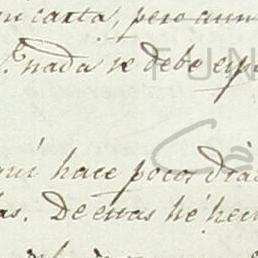 en carta, pero aun
nada se debe esp
FUN
quí hace pocos dia
las. De estas hé hech